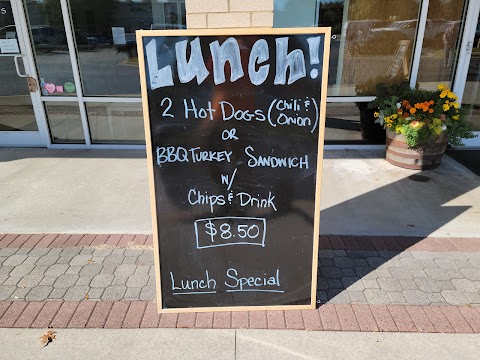 Lunch!
2 Hot Dogs (Chili & Onion)
OR
BBQ Turkey Sandwich
w/
Chips & Drink
$8.50
Lunch Special